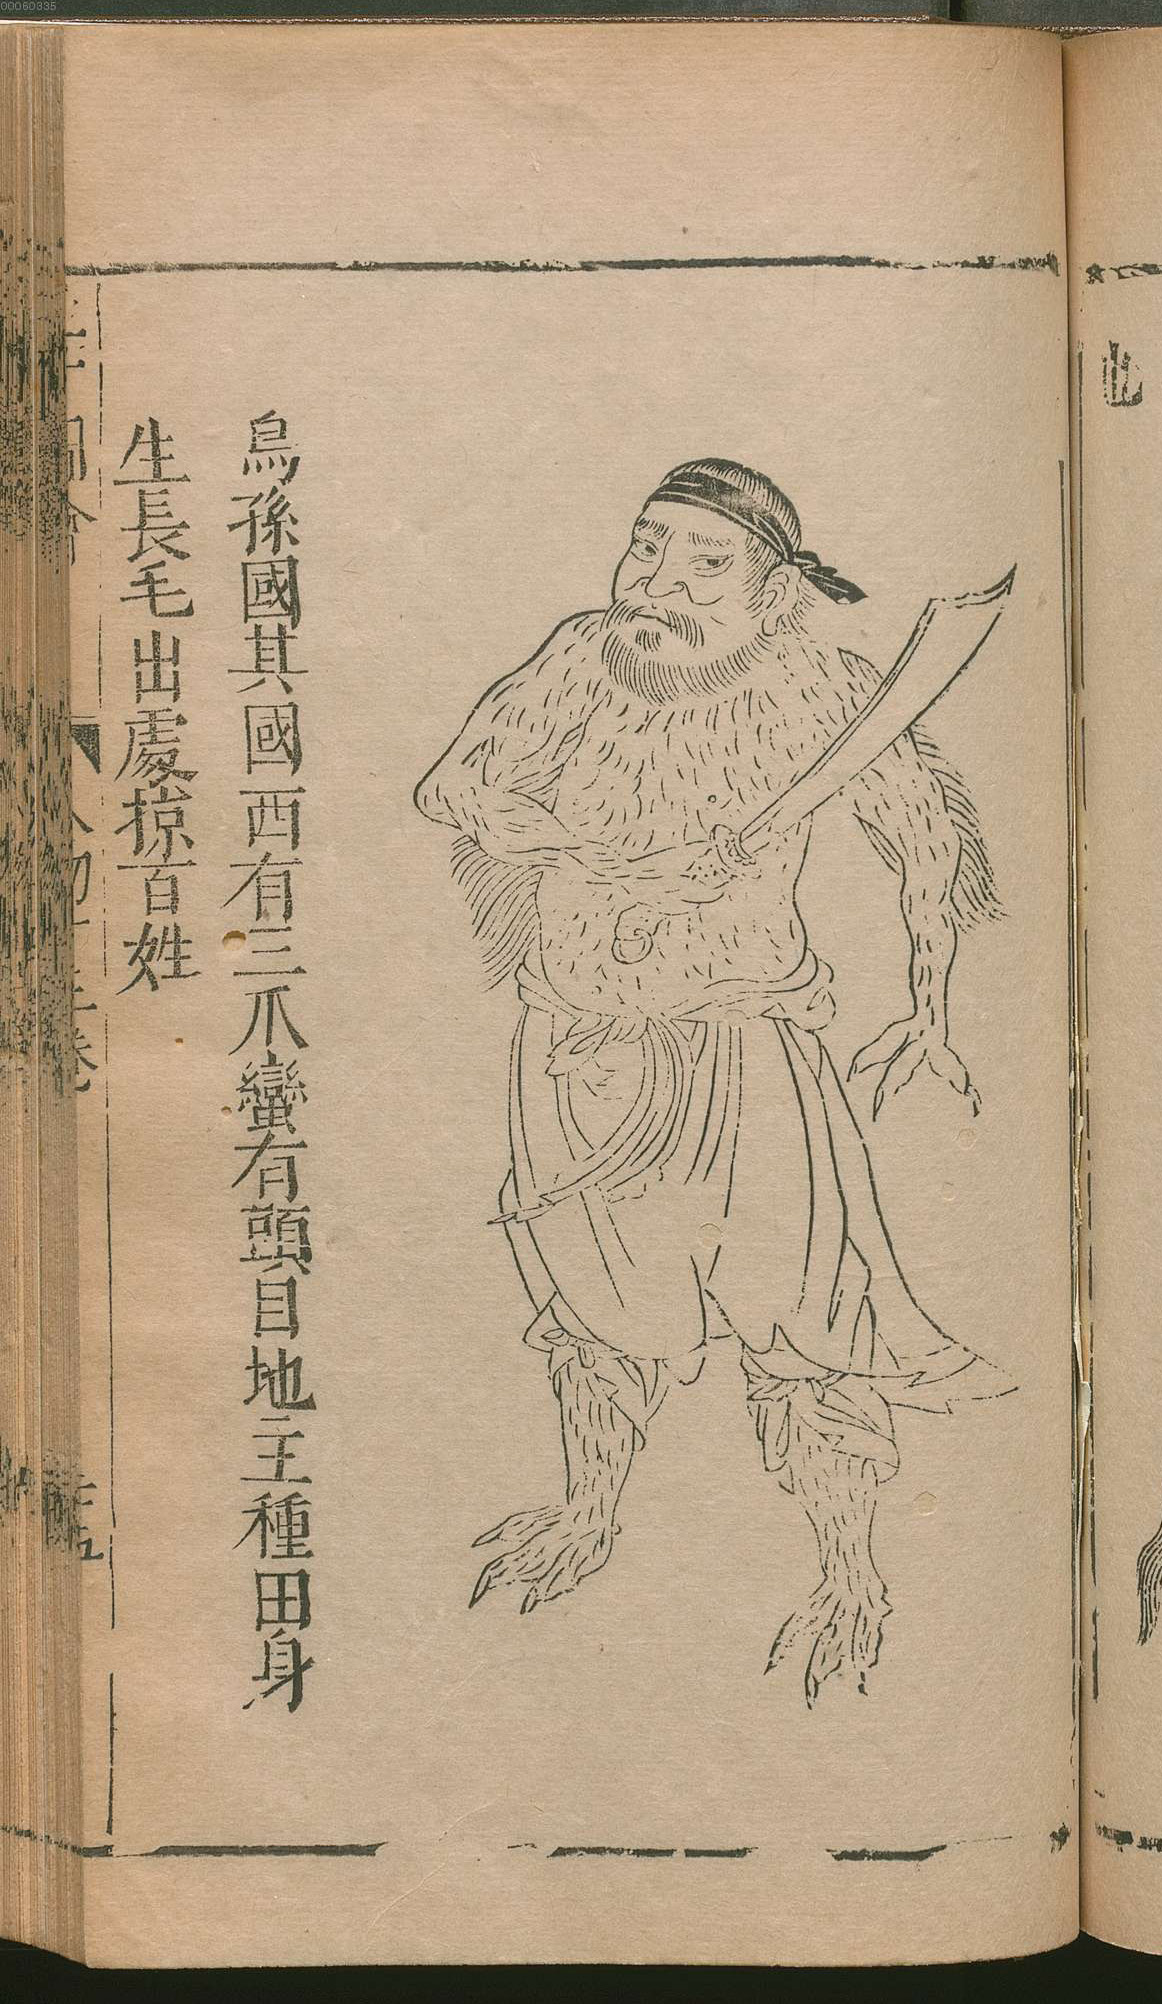 烏孫國其國西有三爪蠻有頭目地主種田身
生長毛出處掠百姓
也
00060335